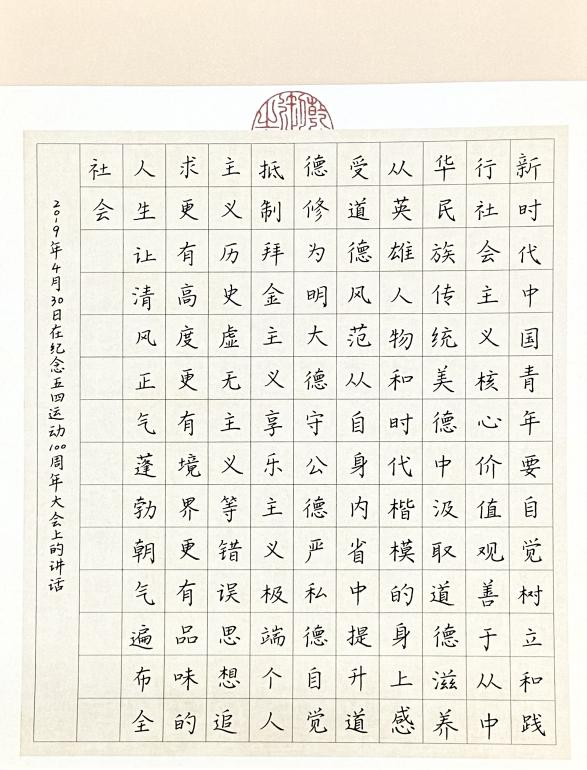 新时代中国青年要自觉树立和践
行社会主义核心价值观善于从中
华民族传统美德中汲取道德滋养
从英雄人物和时代楷模的身上感
受道德风范从自身内省中提升道
德修为明大德守公德严私德自觉
抵制拜金主义享乐主义极端个人
主义历史虚无主义等错误思想追
求更有高度更有境界更有品味的
人生让清风正气蓬勃朝气遍布全
社会
2019年4月30日在纪念五四运动100周年大会上的讲话